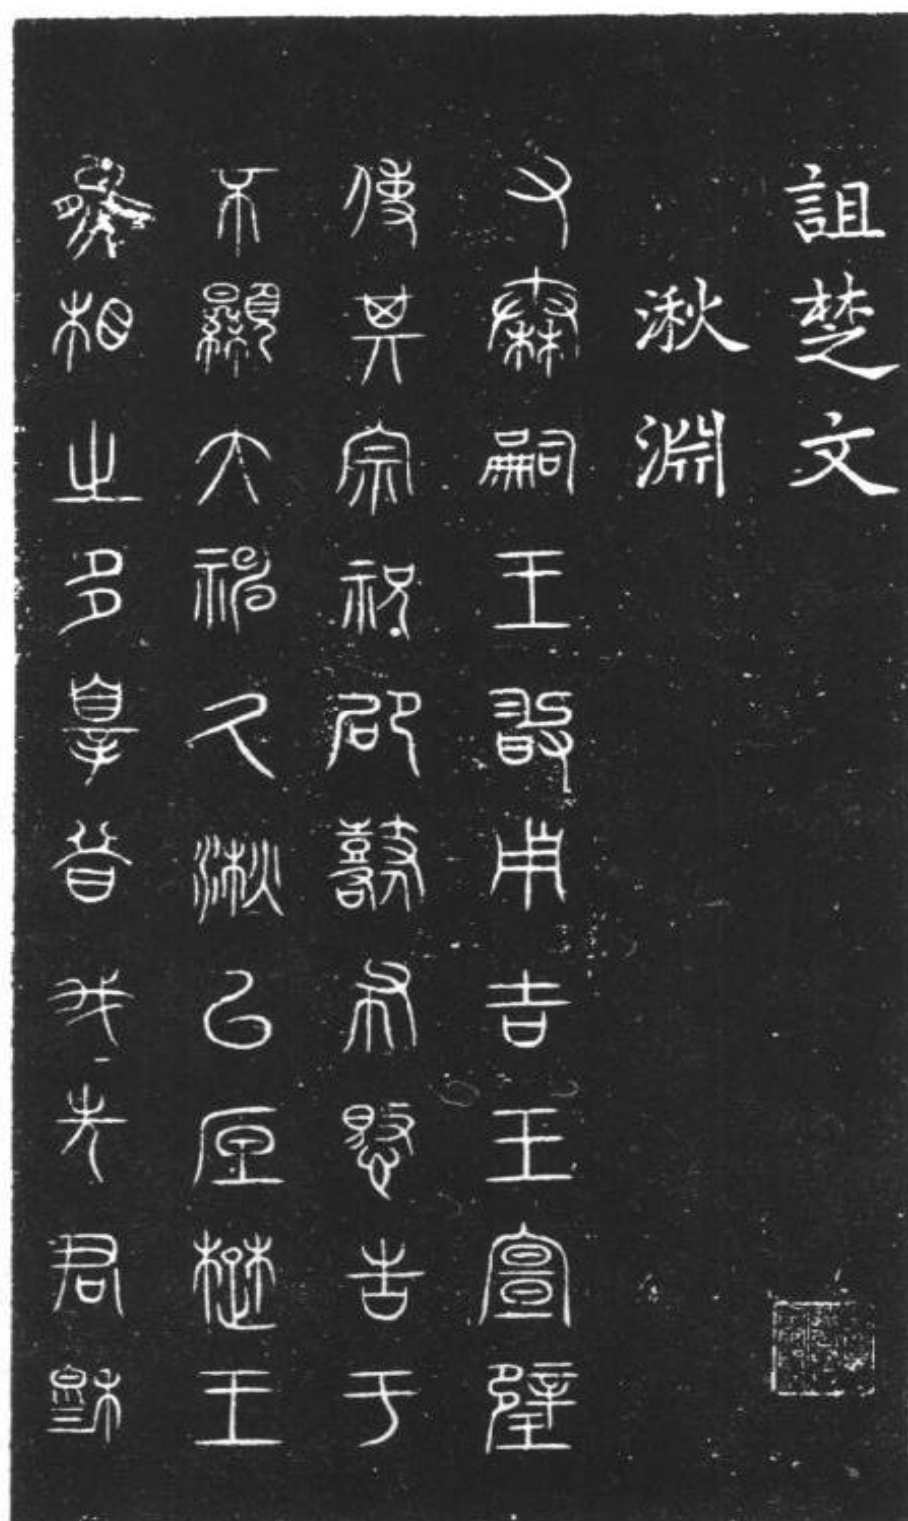 詛楚文
湫淵
又秦嗣王敢用吉玉宣璧
使其宗祝邵鼛布憝告于
不顯大神久湫以厎楚王
熊相之多辠昔我先君穆